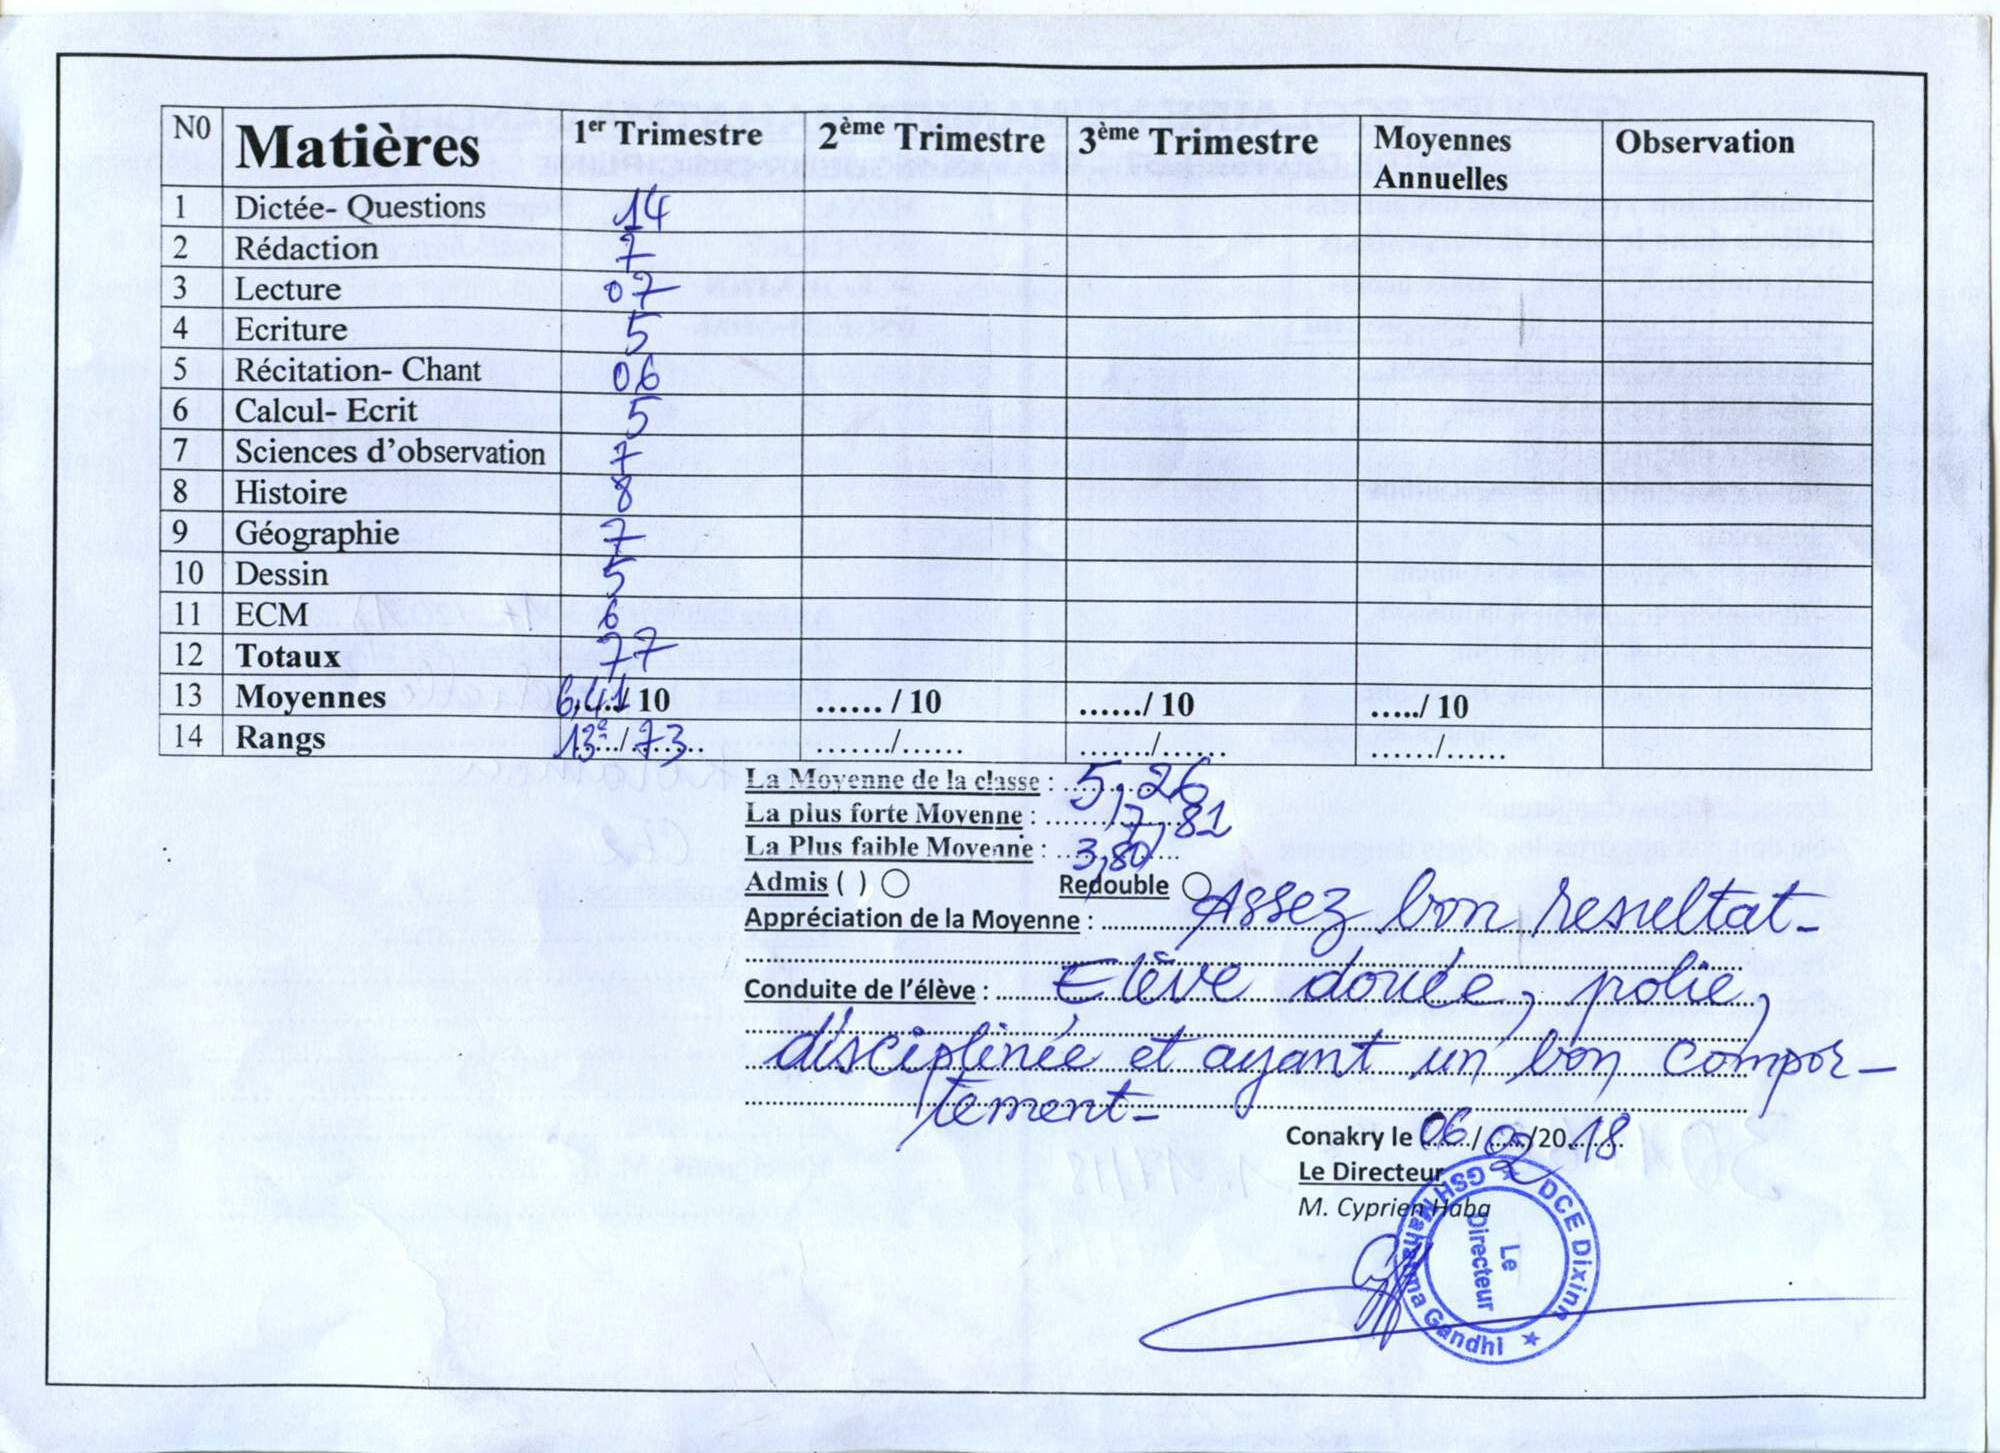 N0 Matières 1er Trimestre 2ème Trimestre 3ème Trimestre Moyennes Annuelles Observation
1 Dictée- Questions 14
2 Rédaction 7
3 Lecture 07
4 Ecriture 5
5 Récitation- Chant 06
6 Calcul- Ecrit 5
7 Sciences d'observation 7
8 Histoire 8
9 Géographie 7
10 Dessin 5
11 ECM 6
12 Totaux 77
13 Moyennes 6,41 / 10 ...... / 10 ....../ 10 ...../ 10
14 Rangs 13e /73 ....../...... ....../...... ....../......
La Moyenne de la classe : 5,26
La plus forte Moyenne : 7,81
La Plus faible Moyenne : 3,80
Admis ( ) Redouble
Appréciation de la Moyenne : Assez bon resultat-
Conduite de l'élève : Elève douée, polie,
disciplinée et ayant un bon compor-
tement-
Conakry le 06/02/2018
Le Directeur
M. Cyprien Haba
DCE Dixinn
GSH Mahatma Gandhi
Le Directeur